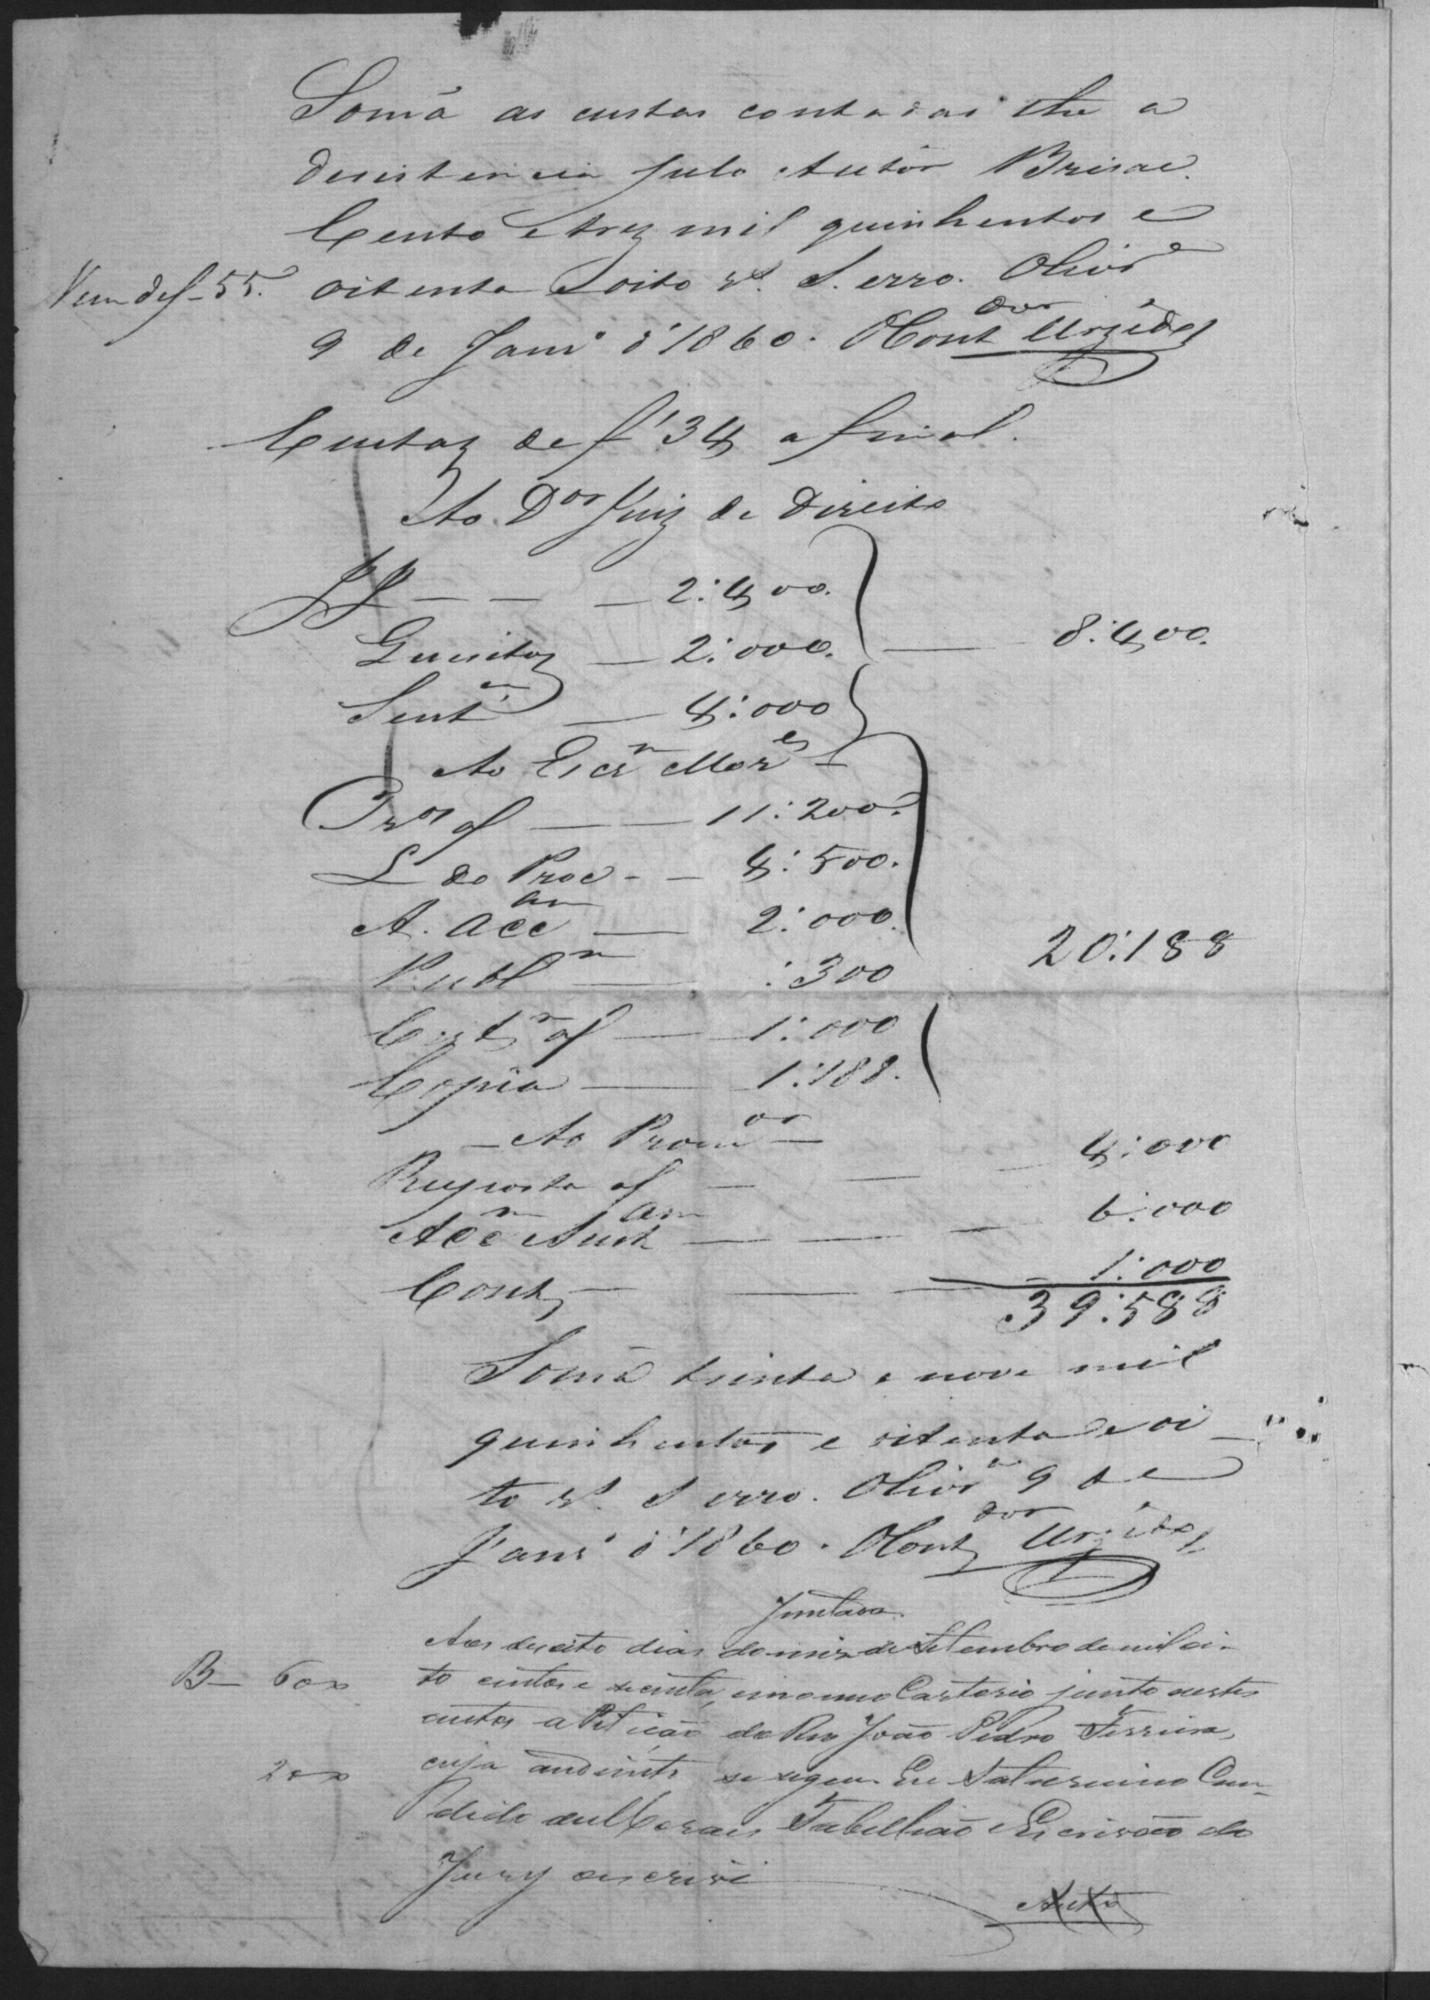 Somã as custas contadas the a
desistencia pelo Autor Brisac
Cento e trez mil quinhentos e
Vem de f 55. oitenta e oito rs. S. erro. Olivrª
9 de Janrº d'1860. O Contdor Urzedo
Custaz de f 34 a final.
Ao Dor Juiz de Direito
JJ — — — 2:400.
Quesitoz — 2:000. — 8:400.
Sentª — 4:000
Ao Escrm Mors
Tros af — — 11:200.
L do Proc - — 4:500.
A. Acc am — 2:000.
Publm — :300 20:188
Certm af — 1:000
Copia — 1:188.
— Ao Promor —
Resposta af — — — 4:000
Acc Sust am — — — 6:000
Contz — — — 1:000
39:588
Somã trinta e nove mil
quinhentos e oitenta e oi
to rs. S erro. Olivrª 9 de
Janrº d'1860. O Contdor Urzedo
Juntada.
Aos desoito dias do mez de Setembro de mil oi-
B— 600 to centos e secenta, em o meu Cartorio junto a estes
autos a Petição do Reo João Pedro Ferreira,
200 cuja audiente se segue. Eu Saturnino Can-
dido de Moraes Tabellião Escrivão do
Jury o escrevi